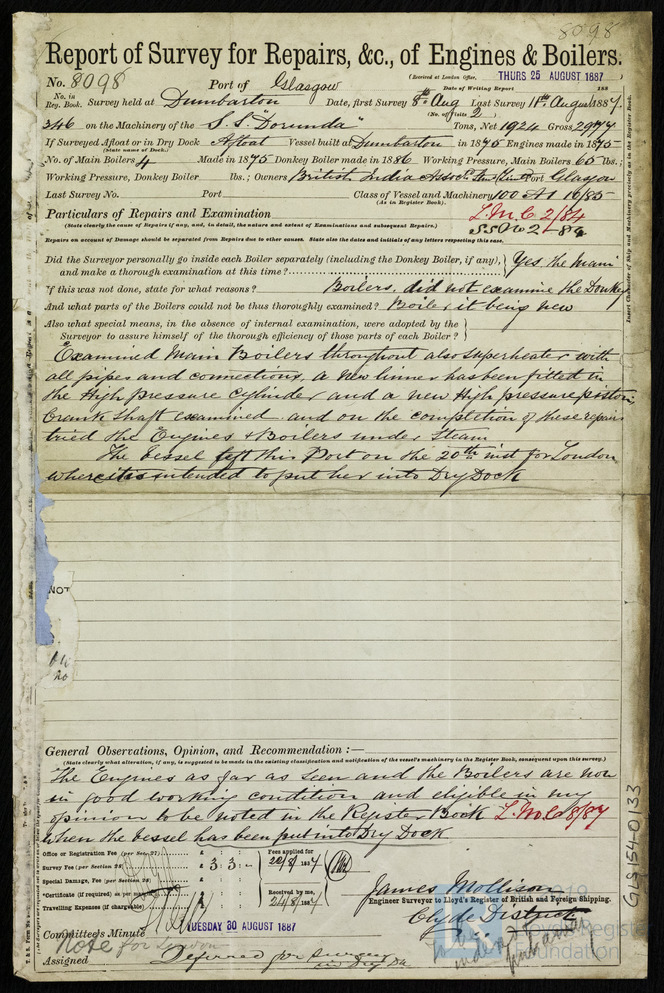 8098
Report of Survey for Repairs, &c., of Engines & Boilers.
(Received at London Office, THURS 25 AUGUST 1887 )
No. 8098 Port of Glasgow Date of Writing Report 188
No. in Reg. Book. Survey held at Dumbarton Date, first Survey 8th Aug Last Survey 11th August 1887.
(No. of Visits 2 )
346 on the Machinery of the S.S. "Dorunda" Tons, Net 1924 Gross 2977
If Surveyed Afloat or in Dry Dock Afloat Vessel built at Dumbarton in 1875 Engines made in 1875
(State name of Dock.)
No. of Main Boilers 4 Made in 1875 Donkey Boiler made in 1886 Working Pressure, Main Boilers 65 lbs.;
Working Pressure, Donkey Boiler lbs.; Owners British India Port Glasgow
Last Survey No. Port Class of Vessel and Machinery 100 A1 10/85
(As in Register Book).
Particulars of Repairs and Examination L.M.C. 2/84
(State clearly the cause of Repairs if any, and, in detail, the nature and extent of Examinations and subsequent Repairs.)
Repairs on account of Damage should be separated from Repairs due to other causes. State also the dates and initials of any letters respecting this case.
Did the Surveyor personally go inside each Boiler separately (including the Donkey Boiler, if any), and make a thorough examination at this time? Yes the main
If this was not done, state for what reasons? Boilers, did not examine the Donkey
And what parts of the Boilers could not be thus thoroughly examined? Boiler it being new
Also what special means, in the absence of internal examination, were adopted by the
Surveyor to assure himself of the thorough efficiency of those parts of each Boiler?
Examined Main Boilers throughout also superheater with
all pipes and connections, a new linner has been fitted in
the High pressure cylinder and a new High pressure piston
Crank Shaft examined and on the completion of these repairs
tried the Engines & Boilers under Steam
The vessel left this Port on the 20th inst for London
where it is intended to put her into Dry Dock
Insert Character of Ship and Machinery precisely as in the Register Book.
NOT
General Observations, Opinion, and Recommendation :—
(State clearly what alteration, if any, is suggested to be made in the existing classification and notification of the vessel's machinery in the Register Book, consequent upon this survey.)
The Engines as far as seen and the Boilers are now
in good working condition and eligible in my
opinion to be noted in the Register Book L.M.C 8/87
when the vessel has been put into Dry Dock
Office or Registration Fee (per Sec. 27) £
Survey Fee (per Section 28) £ 3 : 3 : -
Special Damage Fee (per Section 28) £
*Certificate (if required) as per
Travelling Expenses (if chargeable) £
Fees applied for
22/8/1887
Received by me,
24/8/1887
James Mollison
Engineer Surveyor to Lloyd's Register of British and Foreign Shipping.
Clyde District
TUESDAY 30 AUGUST 1887
Committee's Minute
Note for London
Assigned Deferred for Survey
in Dry Dk
GLS154-0133
2019
Lloyd's Register
Foundation